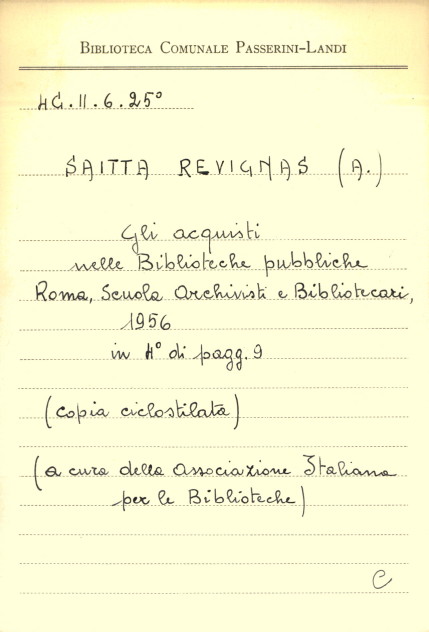 BIBLIOTECA COMUNALE PASSERINI-LANDI
4G.II.6.25°
SAITTA REVIGNAS (A.)
Gli acquisti
nelle Biblioteche pubbliche
Roma, Scuola Archivisti e Bibliotecari,
1956
in 4° di pagg. 9
(copia ciclostilata)
(a cura della Associazione Italiana
per le Biblioteche)
C